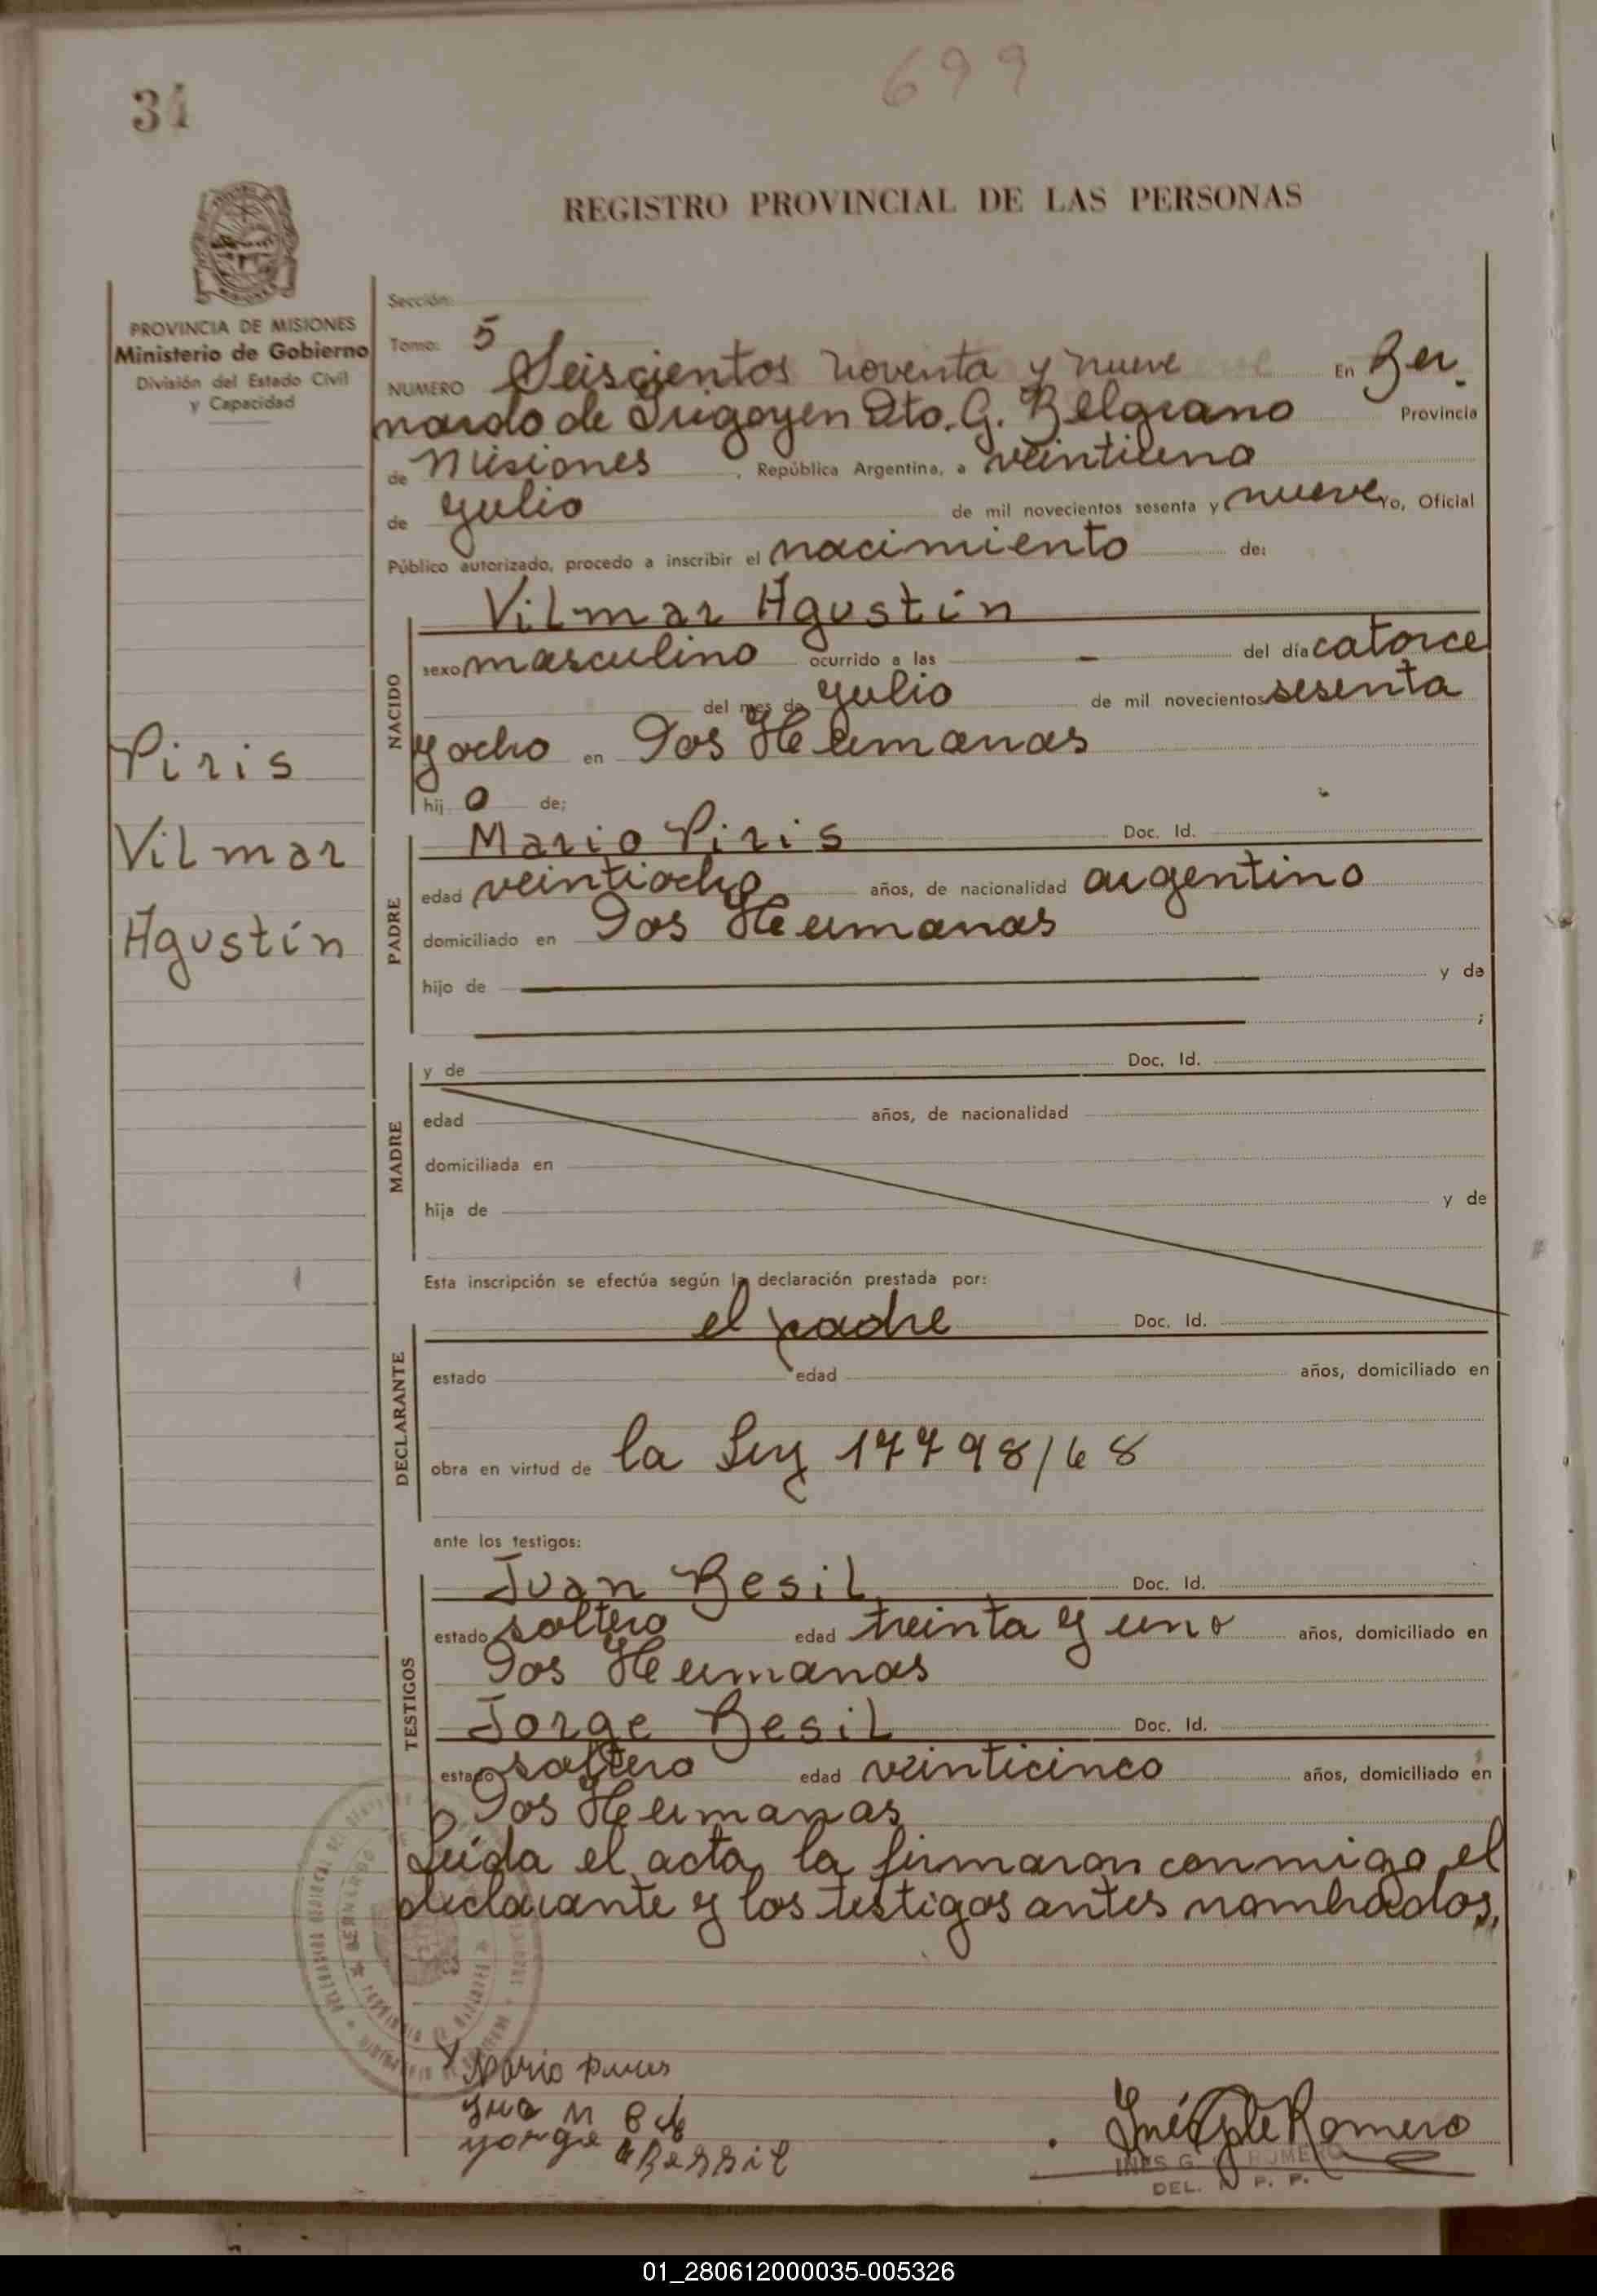 699
34
REGISTRO PROVINCIAL DE LAS PERSONAS
PROVINCIA DE MISIONES
Ministerio de Gobierno
División del Estado Civil
y Capacidad
Sección:
Tomo: 5
NUMERO Seiscientos noventa y nueve En Ber-
nardo de Irigoyen Dto. G. Belgrano Provincia
de Misiones, República Argentina, a veintiuno
de Julio de mil novecientos sesenta y nueve Yo, Oficial
Público autorizado, procedo a inscribir el nacimiento de:
NACIDO
Vilmar Agustín
sexo masculino ocurrido a las - del día catorce
del mes de Julio de mil novecientos sesenta
y ocho en Dos Hermanas
hij o de;
Piris
Vilmar
Agustín
PADRE
Mario Piris Doc. Id.
edad veintiocho años, de nacionalidad argentino
domiciliado en Dos Hermanas
hijo de y de
;
MADRE
y de Doc. Id.
edad años, de nacionalidad
domiciliada en
hija de y de
Esta inscripción se efectúa según la declaración prestada por:
DECLARANTE
el padre Doc. Id.
estado edad años, domiciliado en
obra en virtud de la Ley 17798/68
ante los testigos:
TESTIGOS
Juan Besil Doc. Id.
estado soltero edad treinta y uno años, domiciliado en
Dos Hermanas
Jorge Besil Doc. Id.
estado soltero edad veinticinco años, domiciliado en
Dos Hermanas
Leída el acta, la firmaron conmigo el
declarante y los testigos antes nombrados,
Mario
Jua n
yorge Bessil
Inés G de Romero
INES G. ROMERO
DEL. R. P. P.
01_280612000035-005326